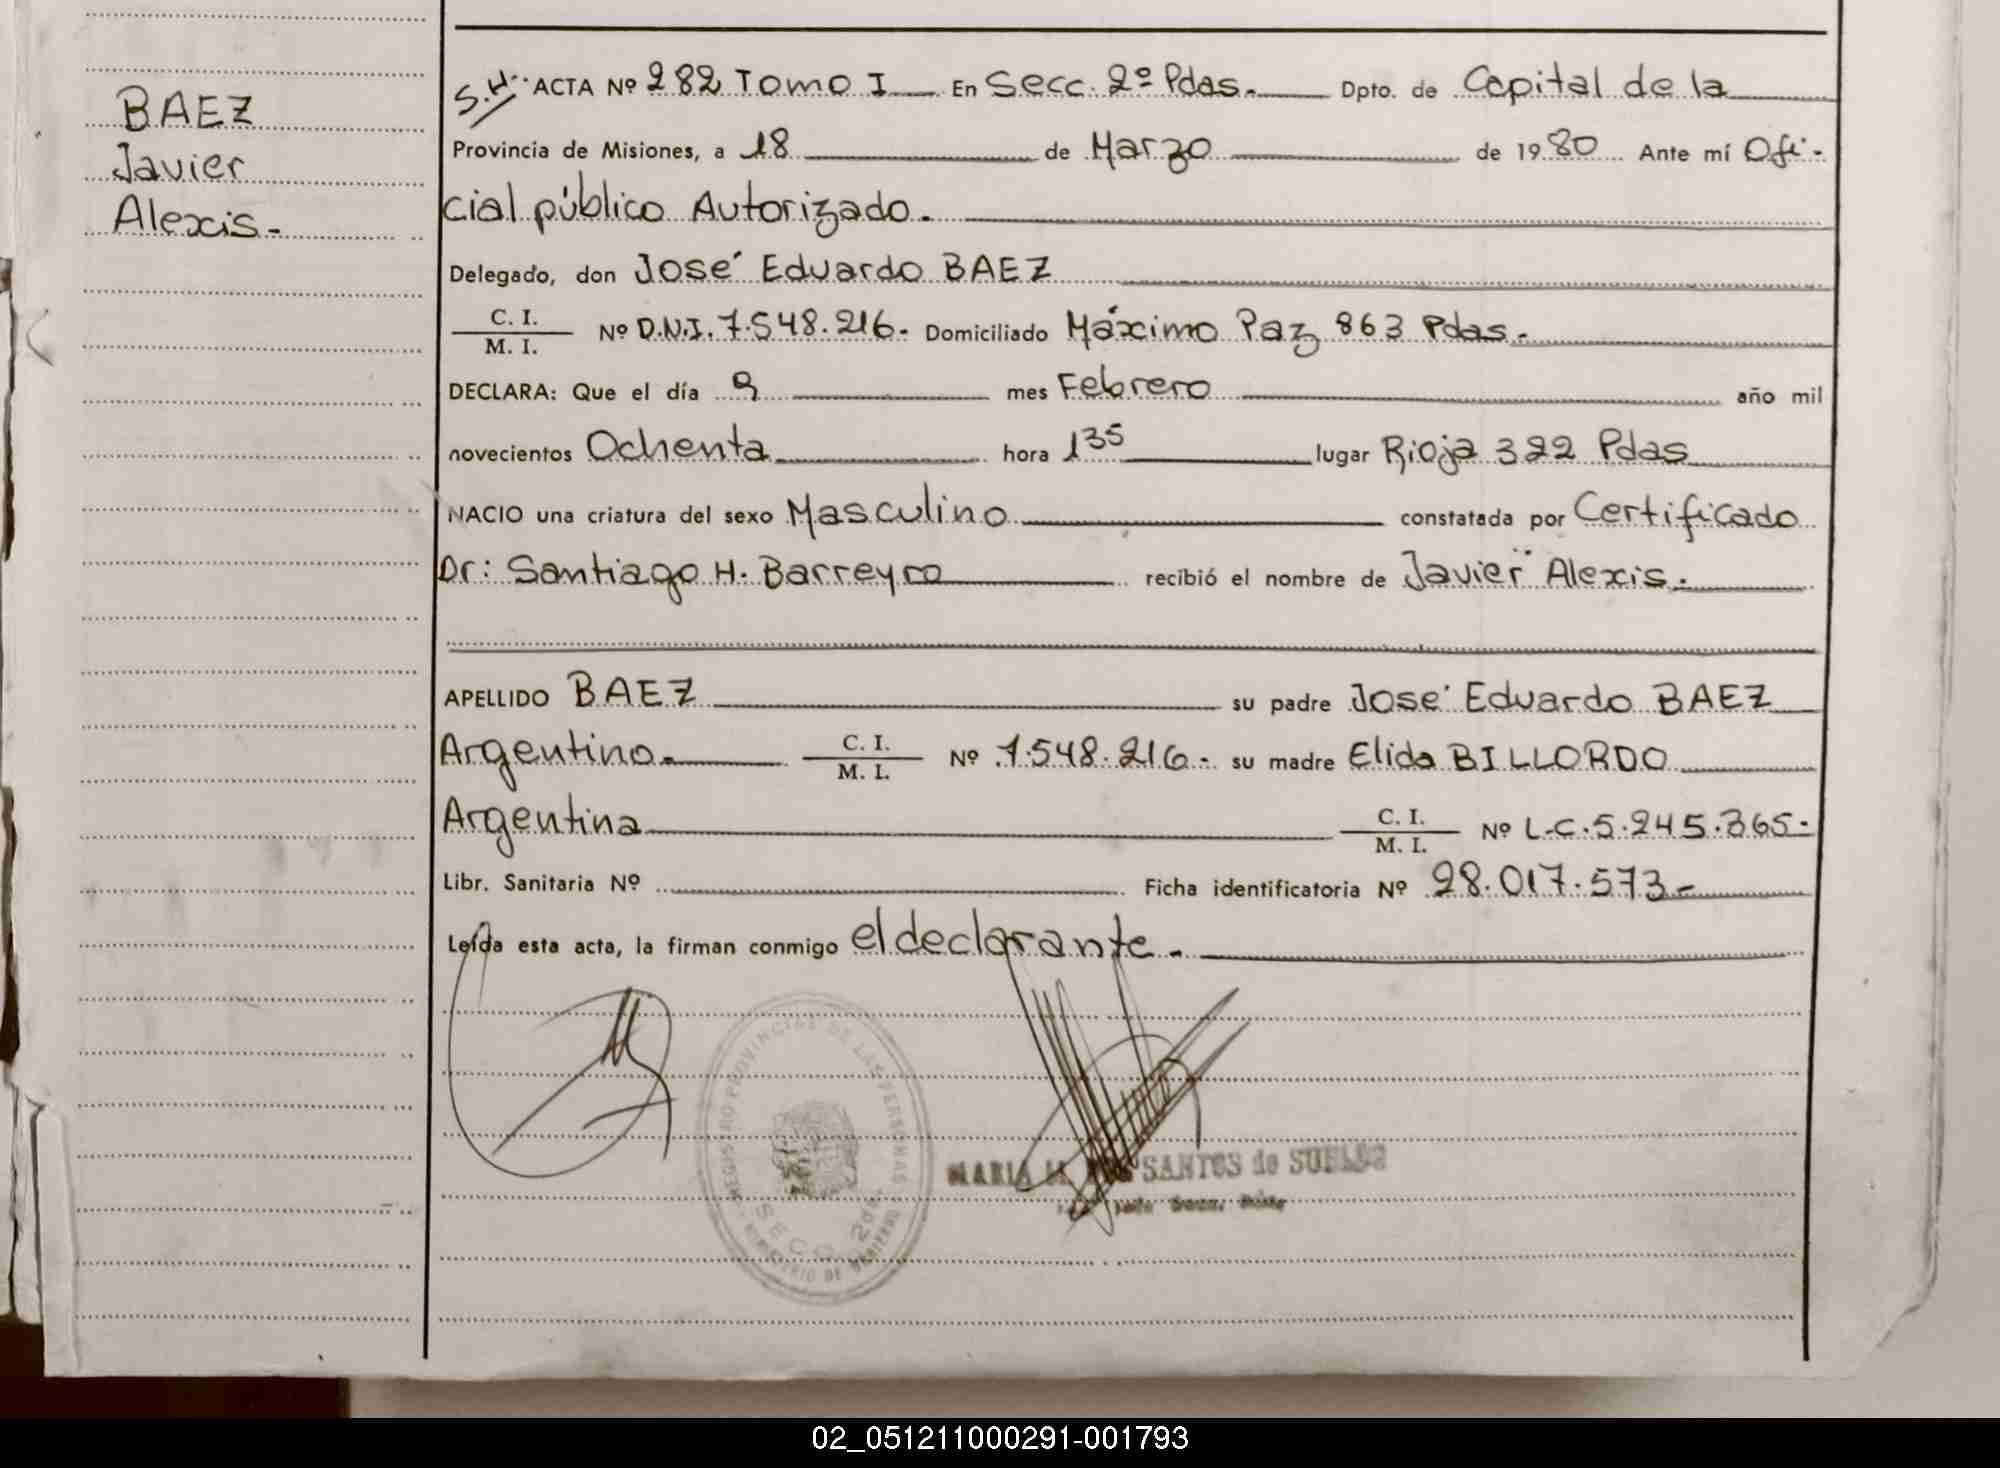 BAEZ
Javier
Alexis.-
S.H. ACTA Nº 282 Tomo I En Secc. 2º Pdas.- Dpto. de Capital de la
Provincia de Misiones, a 18 de Marzo de 1980 Ante mí Ofi-
cial público Autorizado.-
Delegado, don José Eduardo BAEZ
C. I.
M. I.
Nº D.N.I. 7.548.216.- Domiciliado Máximo Paz 863 Pdas.-
DECLARA: Que el día 9 mes Febrero año mil
novecientos Ochenta hora 1 35 lugar Rioja 322 Pdas
NACIO una criatura del sexo Masculino constatada por Certificado
Dr: Santiago H. Barreyro recibió el nombre de Javier Alexis.-
APELLIDO BAEZ su padre José Eduardo BAEZ
Argentino.- C. I. M. I. Nº 7.548.216.- su madre Elida BILLORDO
Argentina C. I. M. I. Nº L.C.5.245.365.-
Libr. Sanitaria Nº Ficha identificatoria Nº 28.017.573.-
Leída esta acta, la firman conmigo el declarante.-
REGISTRO PROVINCIAL DE LAS PERSONAS
SECC. 2da.
MINISTERIO DE GOBIERNO
MARIA SANTOS de
02_051211000291-001793